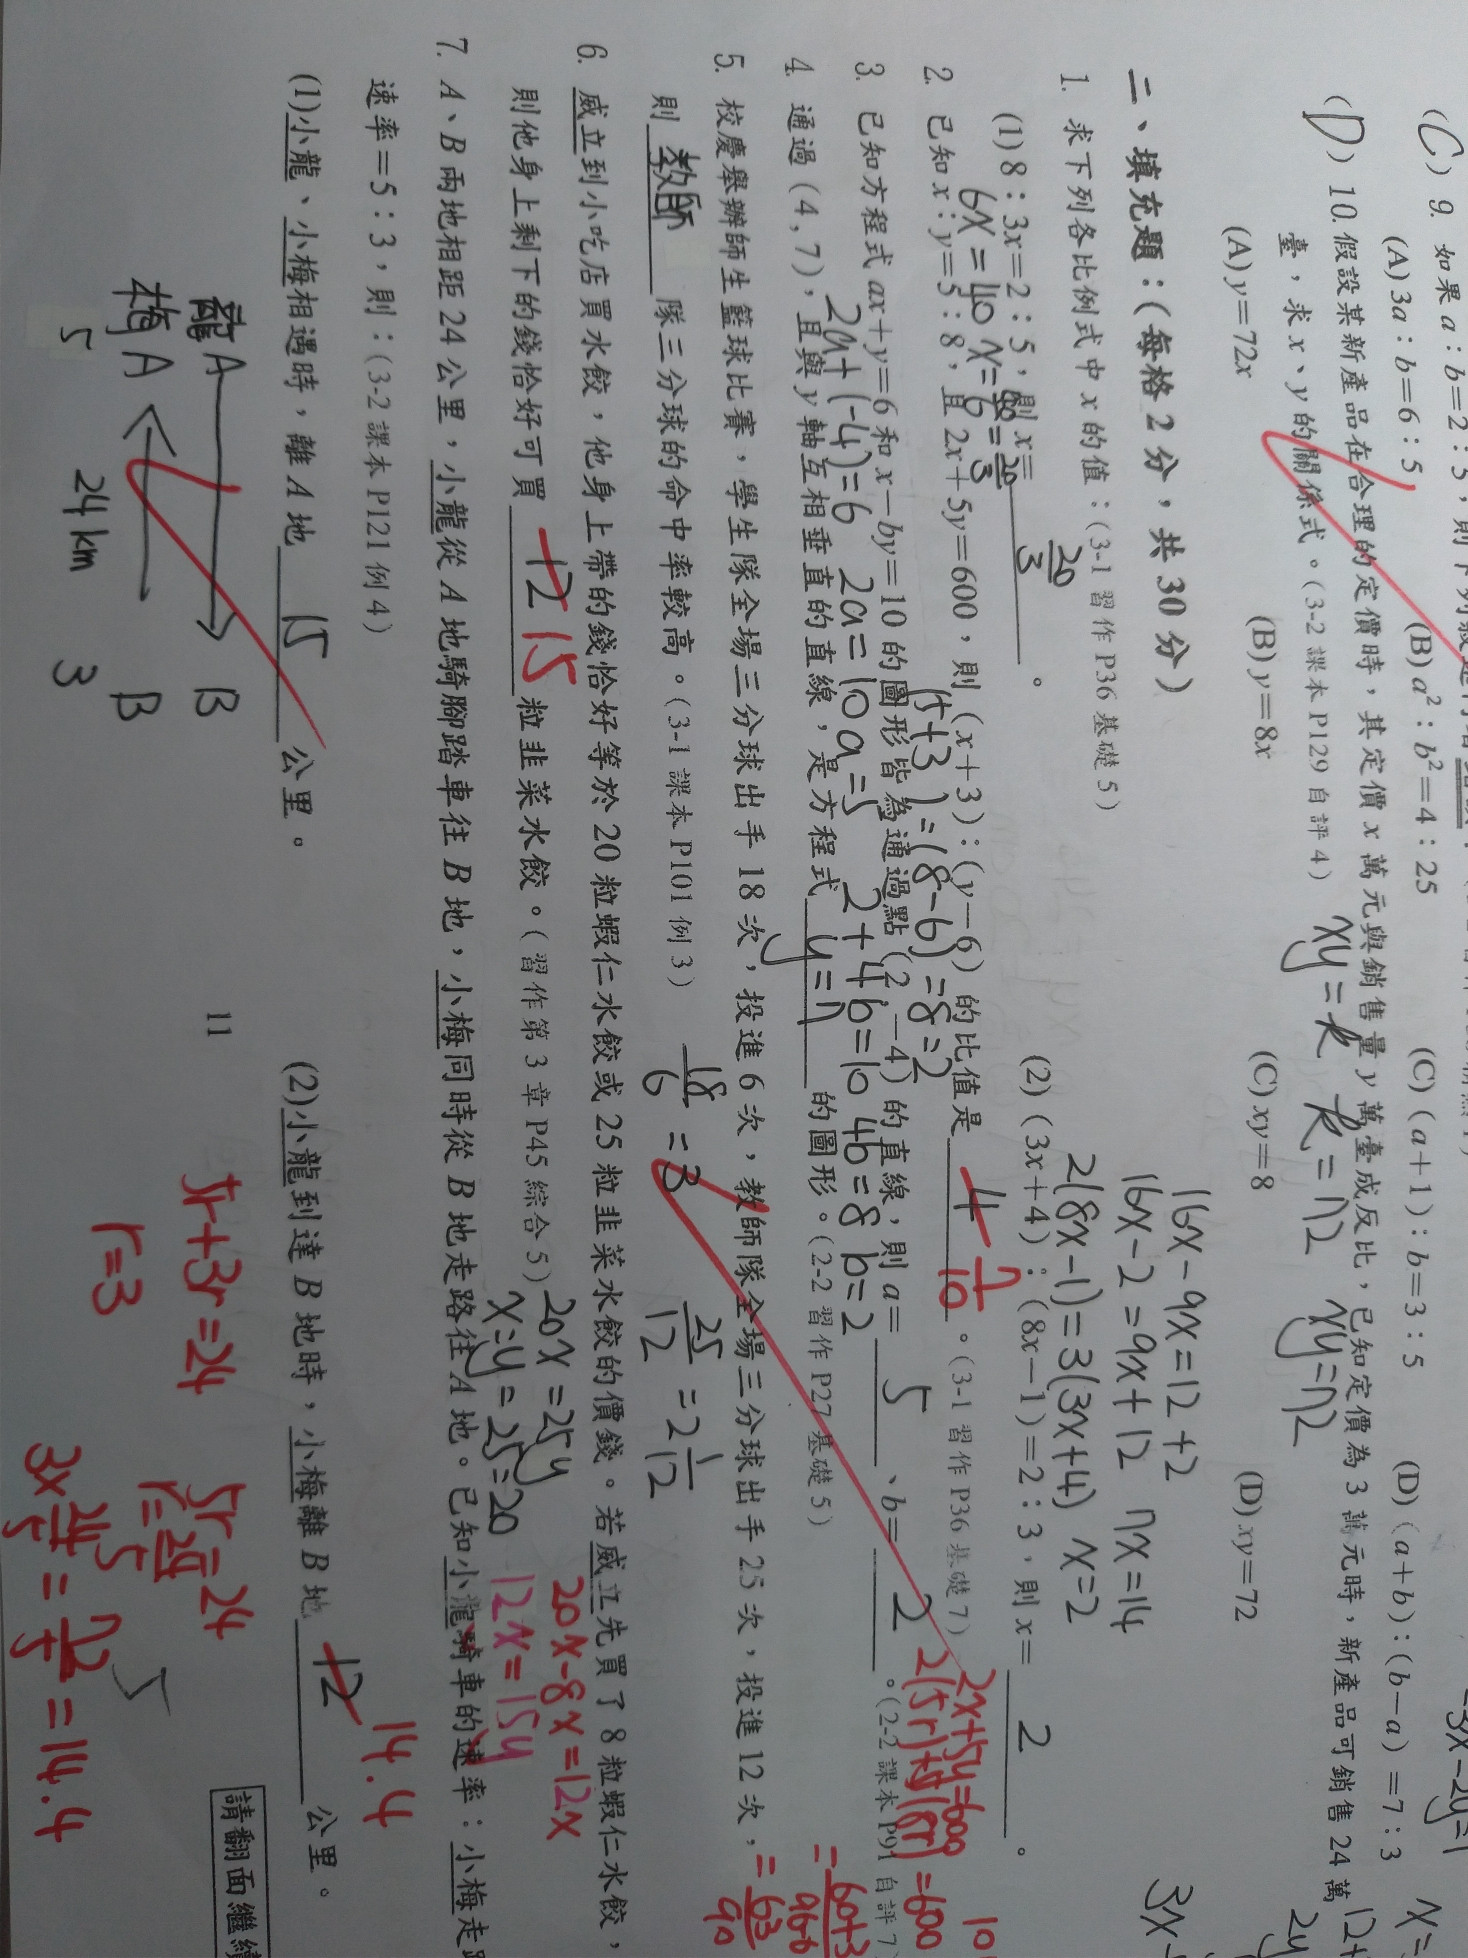 (C) 9. 如果 a:b=2:5，則下列敘述
(A) 3a:b=6:5 (B) a²:b²=4:25 (C) (a+1):b=3:5 (D) (a+b):(b-a)=7:3
(D) 10. 假設某新產品在合理的定價時，其定價 x 萬元與銷售量 y 萬臺成反比，已知定價為 3 萬元時，新產品可銷售 24 萬
臺，求 x、y 的關係式。(3-2 課本 P129 自評 4) xy=k k=72 xy=72
(A) y=72x (B) y=8x (C) xy=8 (D) xy=72
二、填充題：(每格 2 分，共 30 分)
16x-9x=12+2
16x-2=9x+12 7x=14
1. 求下列各比例式中 x 的值：(3-1 習作 P36 基礎 5)
2(8x-1)=3(3x+4) x=2
(1) 8:3x=2:5，則 x= 20/3 。 (2) (3x+4):(8x-1)=2:3，則 x= 2 。
6x=40 x=40/6=20/3
2. 已知 x:y=5:8，且 2x+5y=600，則 (x+3):(y-6) 的比值是 4 7/10 。(3-1 習作 P36 基礎 7) 2x+5y=600
(5+3)=(8-6)=8=2
3. 已知方程式 ax+y=6 和 x-by=10 的圖形皆為通過點 (2,-4) 的直線，則 a= 5 、b= 2 。(2-2 課本 P91 自評 7)
2a+(-4)=6 2a=10 a=5 2+4b=10 4b=8 b=2
4. 通過 (4,7)，且與 y 軸互相垂直的直線，是方程式 y=7 的圖形。(2-2 習作 P27 基礎 5)
5. 校慶舉辦師生籃球比賽，學生隊全場三分球出手 18 次，投進 6 次，教師隊全場三分球出手 25 次，投進 12 次，
則 教師 隊三分球的命中率較高。(3-1 課本 P101 例 3) 18/6=3 25/12=2 1/12
6. 威立到小吃店買水餃，他身上帶的錢恰好等於 20 粒蝦仁水餃或 25 粒韭菜水餃的價錢。若威立先買了 8 粒蝦仁水餃，
則他身上剩下的錢恰好可買 12 15 粒韭菜水餃。(習作第 3 章 P45 綜合 5) 20x=25y 20x-8x=12x
x=y=25=20 12x=15y
7. A、B 兩地相距 24 公里，小龍從 A 地騎腳踏車往 B 地，小梅同時從 B 地走路往 A 地。已知小龍騎車的速率：小梅走
速率=5:3，則：(3-2 課本 P121 例 4)
(1) 小龍、小梅相遇時，離 A 地 15 公里。 (2) 小龍到達 B 地時，小梅離 B 地 12 14.4 公里。
龍 A B
梅 A B
5 24km 3
5r+3r=24
r=3
5r=24
r=24/5
3×24/5=72/5=14.4
11
請翻面繼續